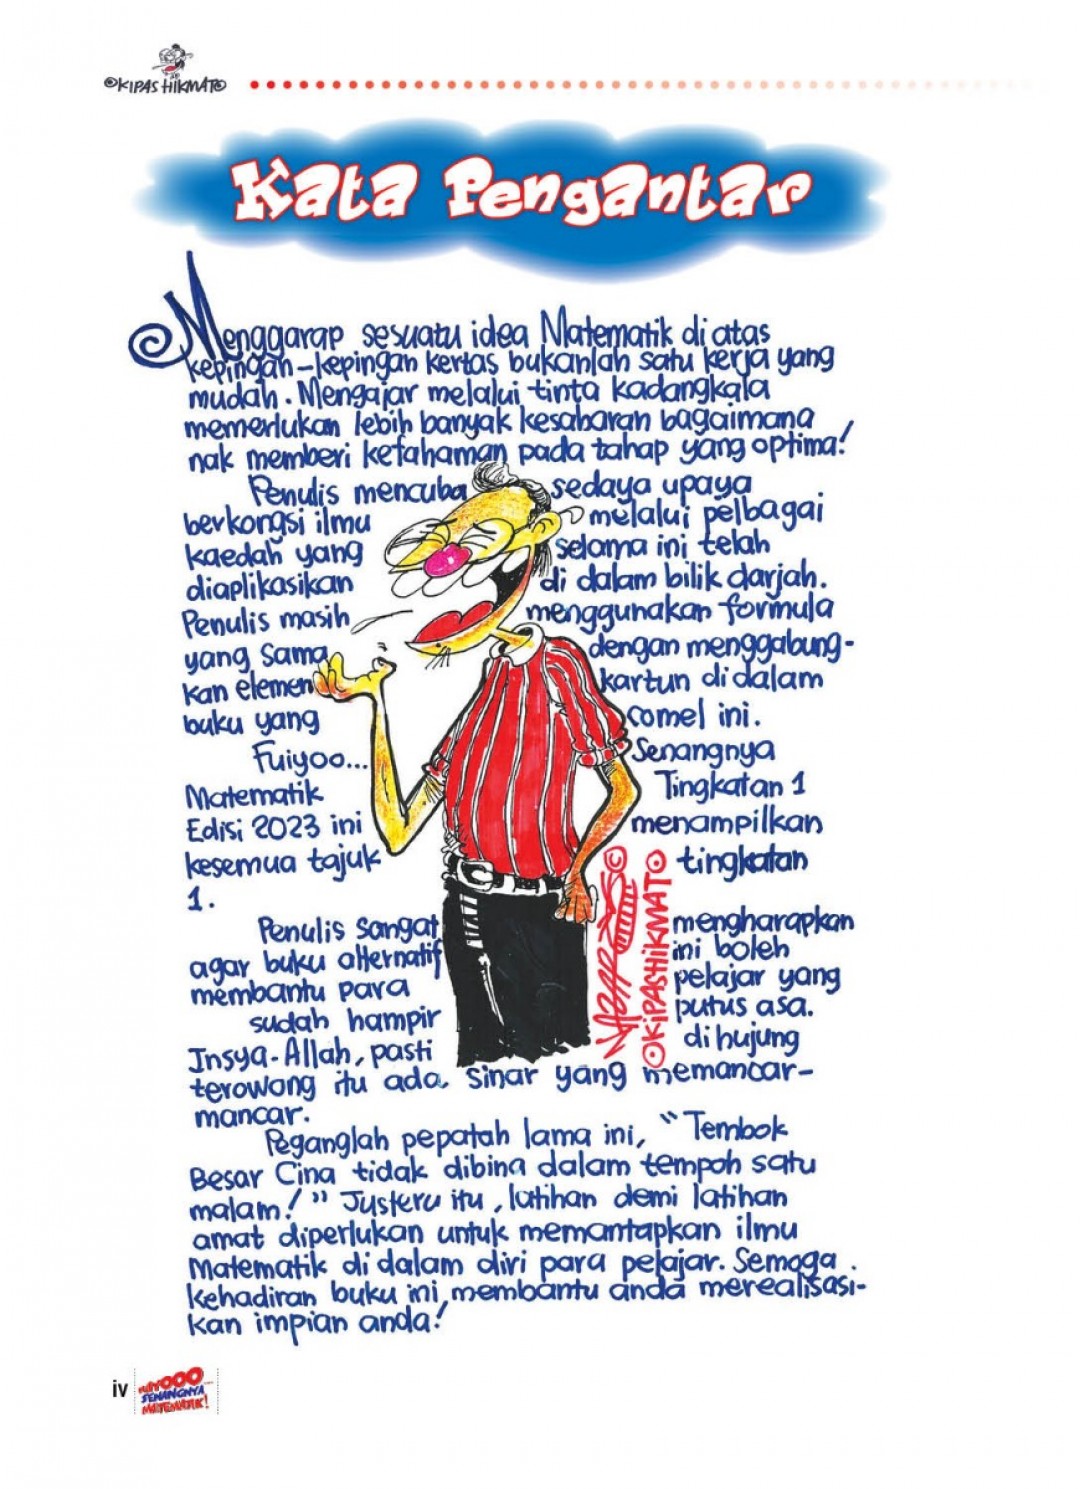 ©KIPASHIKMATO
Kata Pengantar
Menggarap sesuatu idea Matematik di atas
kepingan-kepingan kertas bukanlah satu kerja yang
mudah. Mengajar melalui tinta kadangkala
memerlukan lebih banyak kesabaran bagaimana
nak memberi kefahaman pada tahap yang optima!
Penulis mencuba sedaya upaya
berkongsi ilmu melalui pelbagai
kaedah yang selama ini telah
diaplikasikan di dalam bilik darjah.
Penulis masih menggunakan formula
yang sama dengan menggabung-
kan elemen kartun di dalam
buku yang comel ini.
Fuiyoo... Senangnya
Matematik Tingkatan 1
Edisi 2023 ini menampilkan
kesemua tajuk tingkatan
1.
Penulis sangat mengharapkan
agar buku alternatif ini boleh
membantu para pelajar yang
sudah hampir putus asa.
Insya-Allah, pasti di hujung
terowong itu ada sinar yang memancar-
mancar.
Peganglah pepatah lama ini, "Tembok
Besar Cina tidak dibina dalam tempoh satu
malam!" Justeru itu, latihan demi latihan
amat diperlukan untuk memantapkan ilmu
Matematik di dalam diri para pelajar. Semoga
kehadiran buku ini, membantu anda merealisasi-
kan impian anda!
©KIPASHIKMATO
iv
FUIYOOO
SENANGNYA
MATEMATIK!